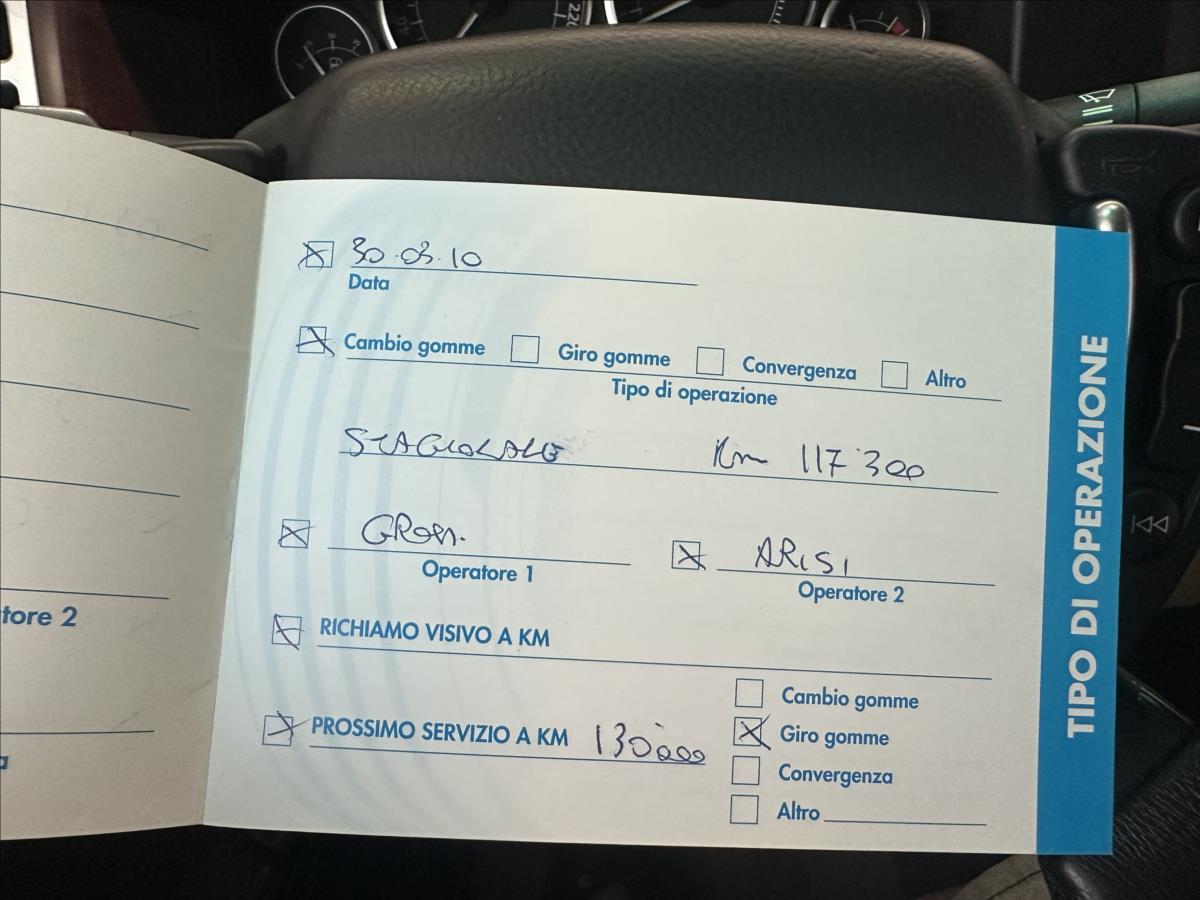 30.03.10
Data
Cambio gomme Giro gomme Convergenza Altro
Tipo di operazione
STAGIONALE Km 117'300
ARISI
Operatore 1 Operatore 2
RICHIAMO VISIVO A KM
PROSSIMO SERVIZIO A KM 130'000
Cambio gomme
Giro gomme
Convergenza
Altro
TIPO DI OPERAZIONE
tore 2
220